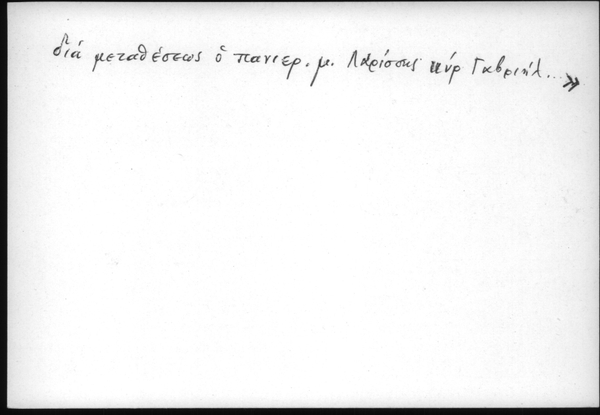 διά μεταθέσεως ὁ πανιερ. μ. Λαρίσσης κύρ Γαβριήλ...»